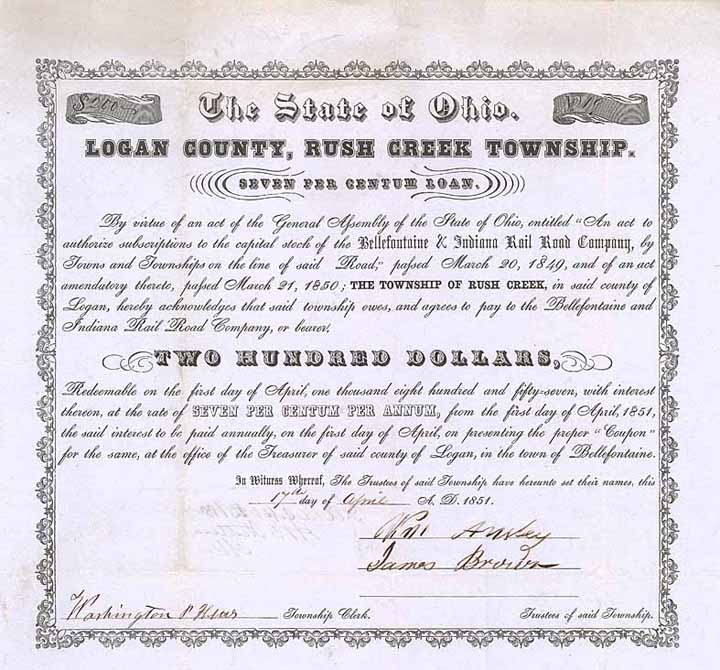 $200
The State of Ohio.
LOGAN COUNTY, RUSH CREEK TOWNSHIP.
SEVEN PER CENTUM LOAN.
By virtue of an act of the General Assembly of the State of Ohio, entitled "An act to
authorize subscriptions to the capital stock of the Bellefontaine & Indiana Rail Road Company, by
Towns and Townships on the line of said Road," passed March 20, 1849, and of an act
amendatory thereto, passed March 21, 1850; THE TOWNSHIP OF RUSH CREEK, in said county of
Logan, hereby acknowledges that said township owes, and agrees to pay to the Bellefontaine and
Indiana Rail Road Company, or bearer,
TWO HUNDRED DOLLARS,
Redeemable on the first day of April, one thousand eight hundred and fifty-seven, with interest
thereon, at the rate of SEVEN PER CENTUM PER ANNUM, from the first day of April, 1851,
the said interest to be paid annually, on the first day of April, on presenting the proper "Coupon"
for the same, at the office of the Treasurer of said county of Logan, in the town of Bellefontaine.
In Witness Whereof, The Trustees of said Township have hereunto set their names, this
17th day of April A. D. 1851.
Wm
James Brown
Washington Township Clerk. Trustees of said Township.